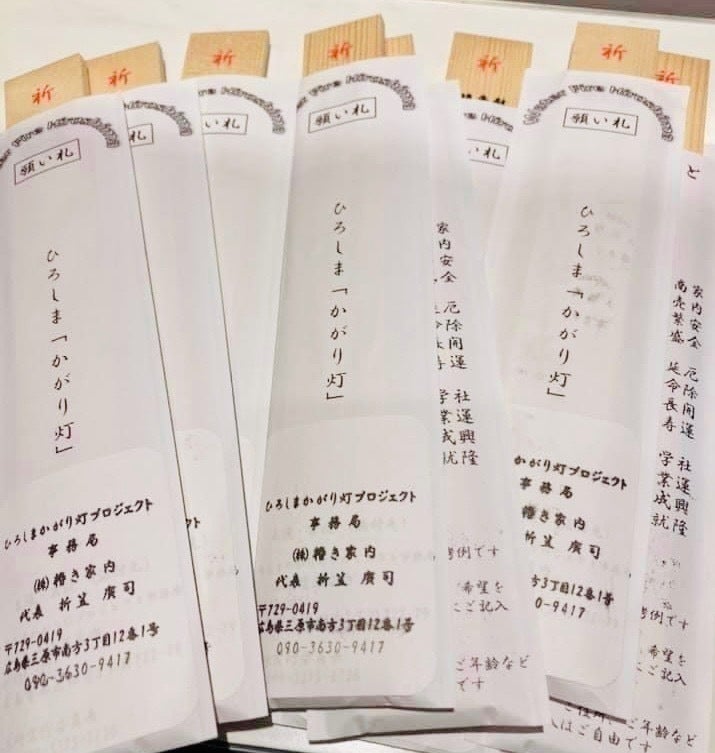 祈
願い札
ひろしま「かがり灯」
ひろしまかがり灯プロジェクト
事務局
代表 折笠 廣司
〒729-0419
広島県三原市南方3丁目12番1号
090-3630-9417
祈
い札
祈
い札
祈
願い札
ひろしま「かがり灯」
ひろしまかがり灯プロジェクト
事務局
代表 折笠 廣司
〒729-0419
広島県三原市南方3丁目12番1号
090-3630-9417
家内安全 厄除開運 社運興隆
学業成就
考例です
希望を
ご記入
ご年齢など
です
祈
い札
祈
願い札
ひろしま「かがり灯」
かがり灯プロジェクト
事務局
折笠 廣司
方3丁目12番1号
0-9417
祈
と
家内安全 厄除開運 社運興隆
商売繁盛 延命長寿 学業成就
考例です
希望を
ご記入
はご自由で